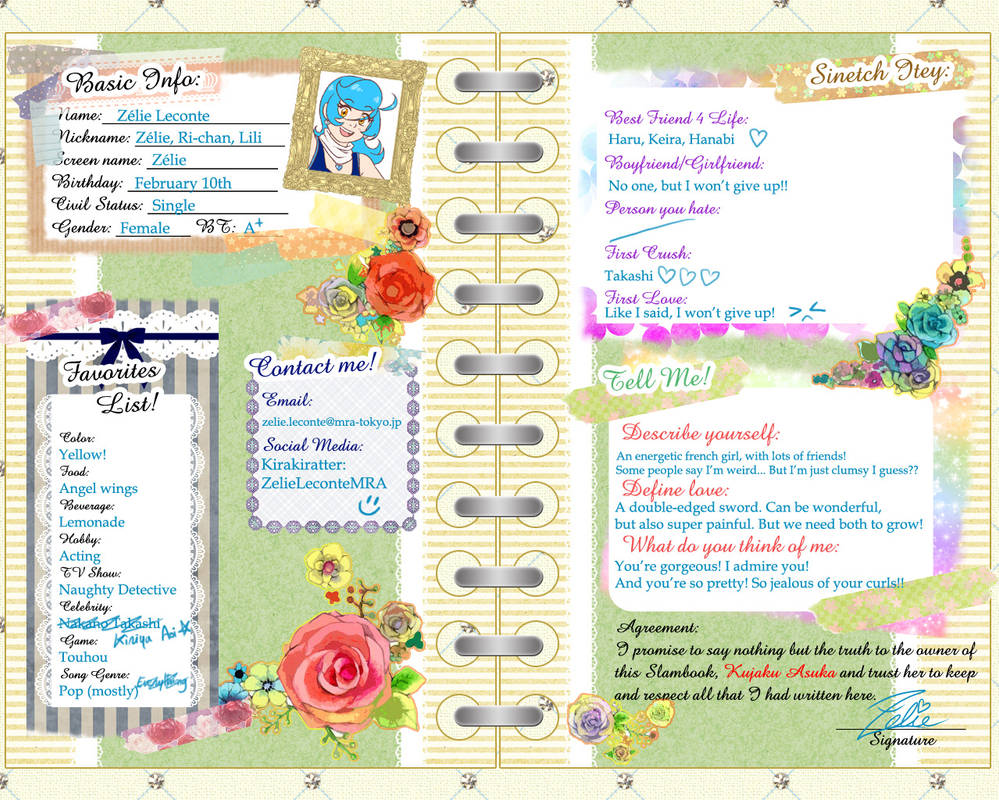 Basic Info:
Name: Zélie Leconte
Nickname: Zélie, Ri-chan, Lili
Screen name: Zélie
Birthday: February 10th
Civil Status: Single
Gender: Female BT: A+
Favorites
List!
Color:
Yellow!
Food:
Angel wings
Beverage:
Lemonade
Hobby:
Acting
TV Show:
Naughty Detective
Celebrity:
Nakano Takashi
Kiriya Aoi
Game:
Touhou
Song Genre:
Pop (mostly) Everything
Contact me!
Email:
zelie.leconte@mra-tokyo.jp
Social Media:
Kirakiratter:
ZelieLeconteMRA
Sinetch Itey:
Best Friend 4 Life:
Haru, Keira, Hanabi
Boyfriend/Girlfriend:
No one, but I won't give up!!
Person you hate:
First Crush:
Takashi
First Love:
Like I said, I won't give up! >.<
Tell Me!
Describe yourself:
An energetic french girl, with lots of friends!
Some people say I'm weird... But I'm just clumsy I guess??
Define love:
A double-edged sword. Can be wonderful,
but also super painful. But we need both to grow!
What do you think of me:
You're gorgeous! I admire you!
And you're so pretty! So jealous of your curls!!
Agreement:
I promise to say nothing but the truth to the owner of
this Slambook, Kujaku Asuka and trust her to keep
and respect all that I had written here.
Zelie
Signature